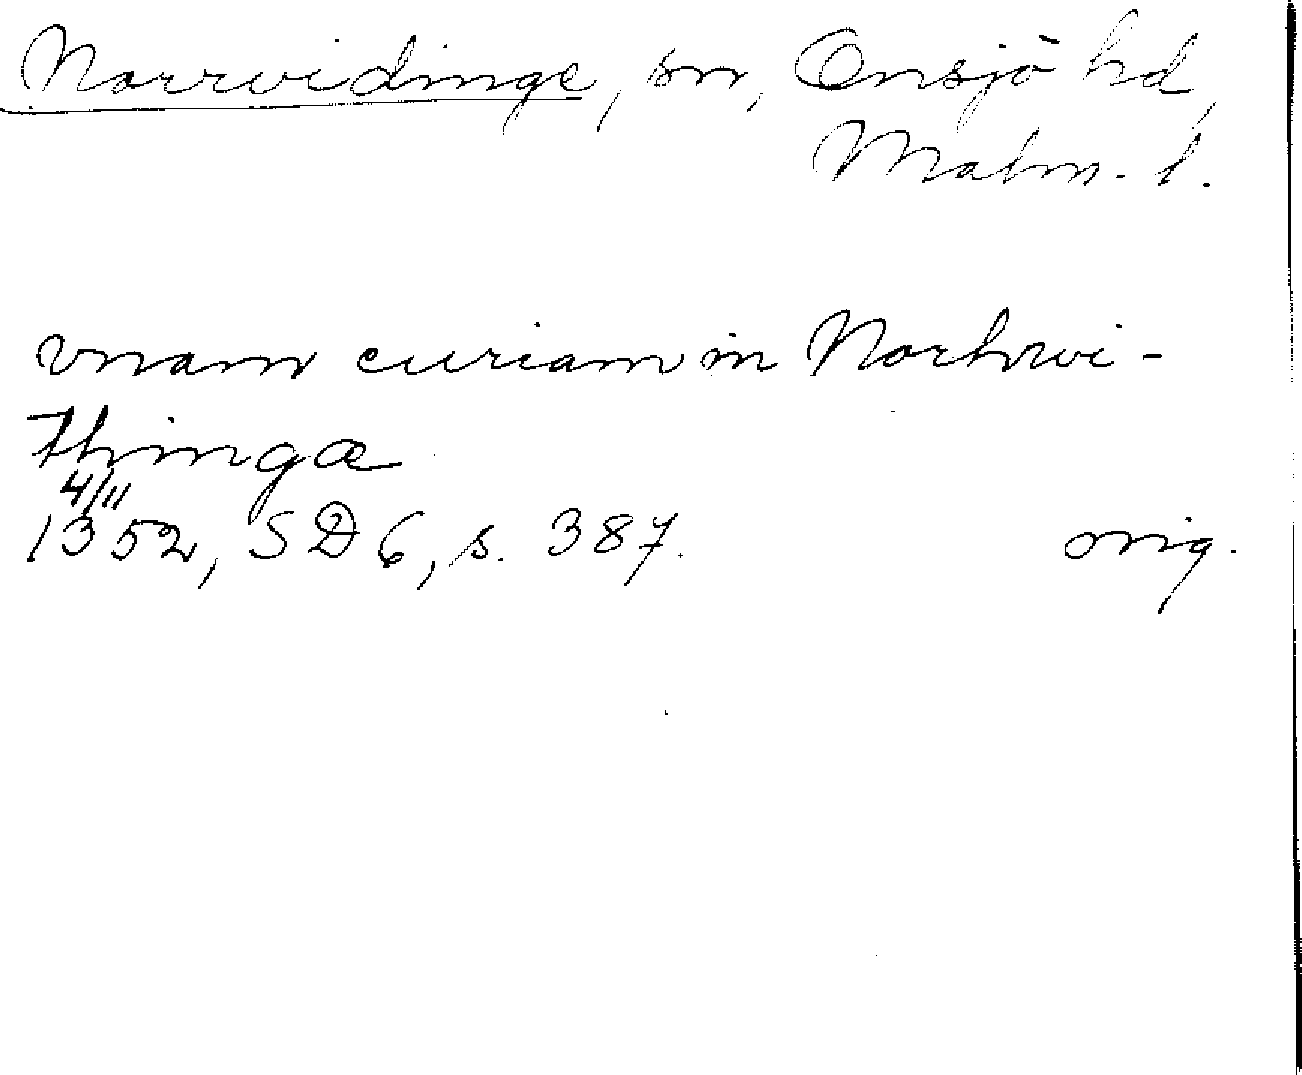 Norrvidinge, sn, Onsjö hd,
Malm. l.
vnam curiam in Norhwi-
thingæ
4/11
1352, SD 6, s. 387. orig.